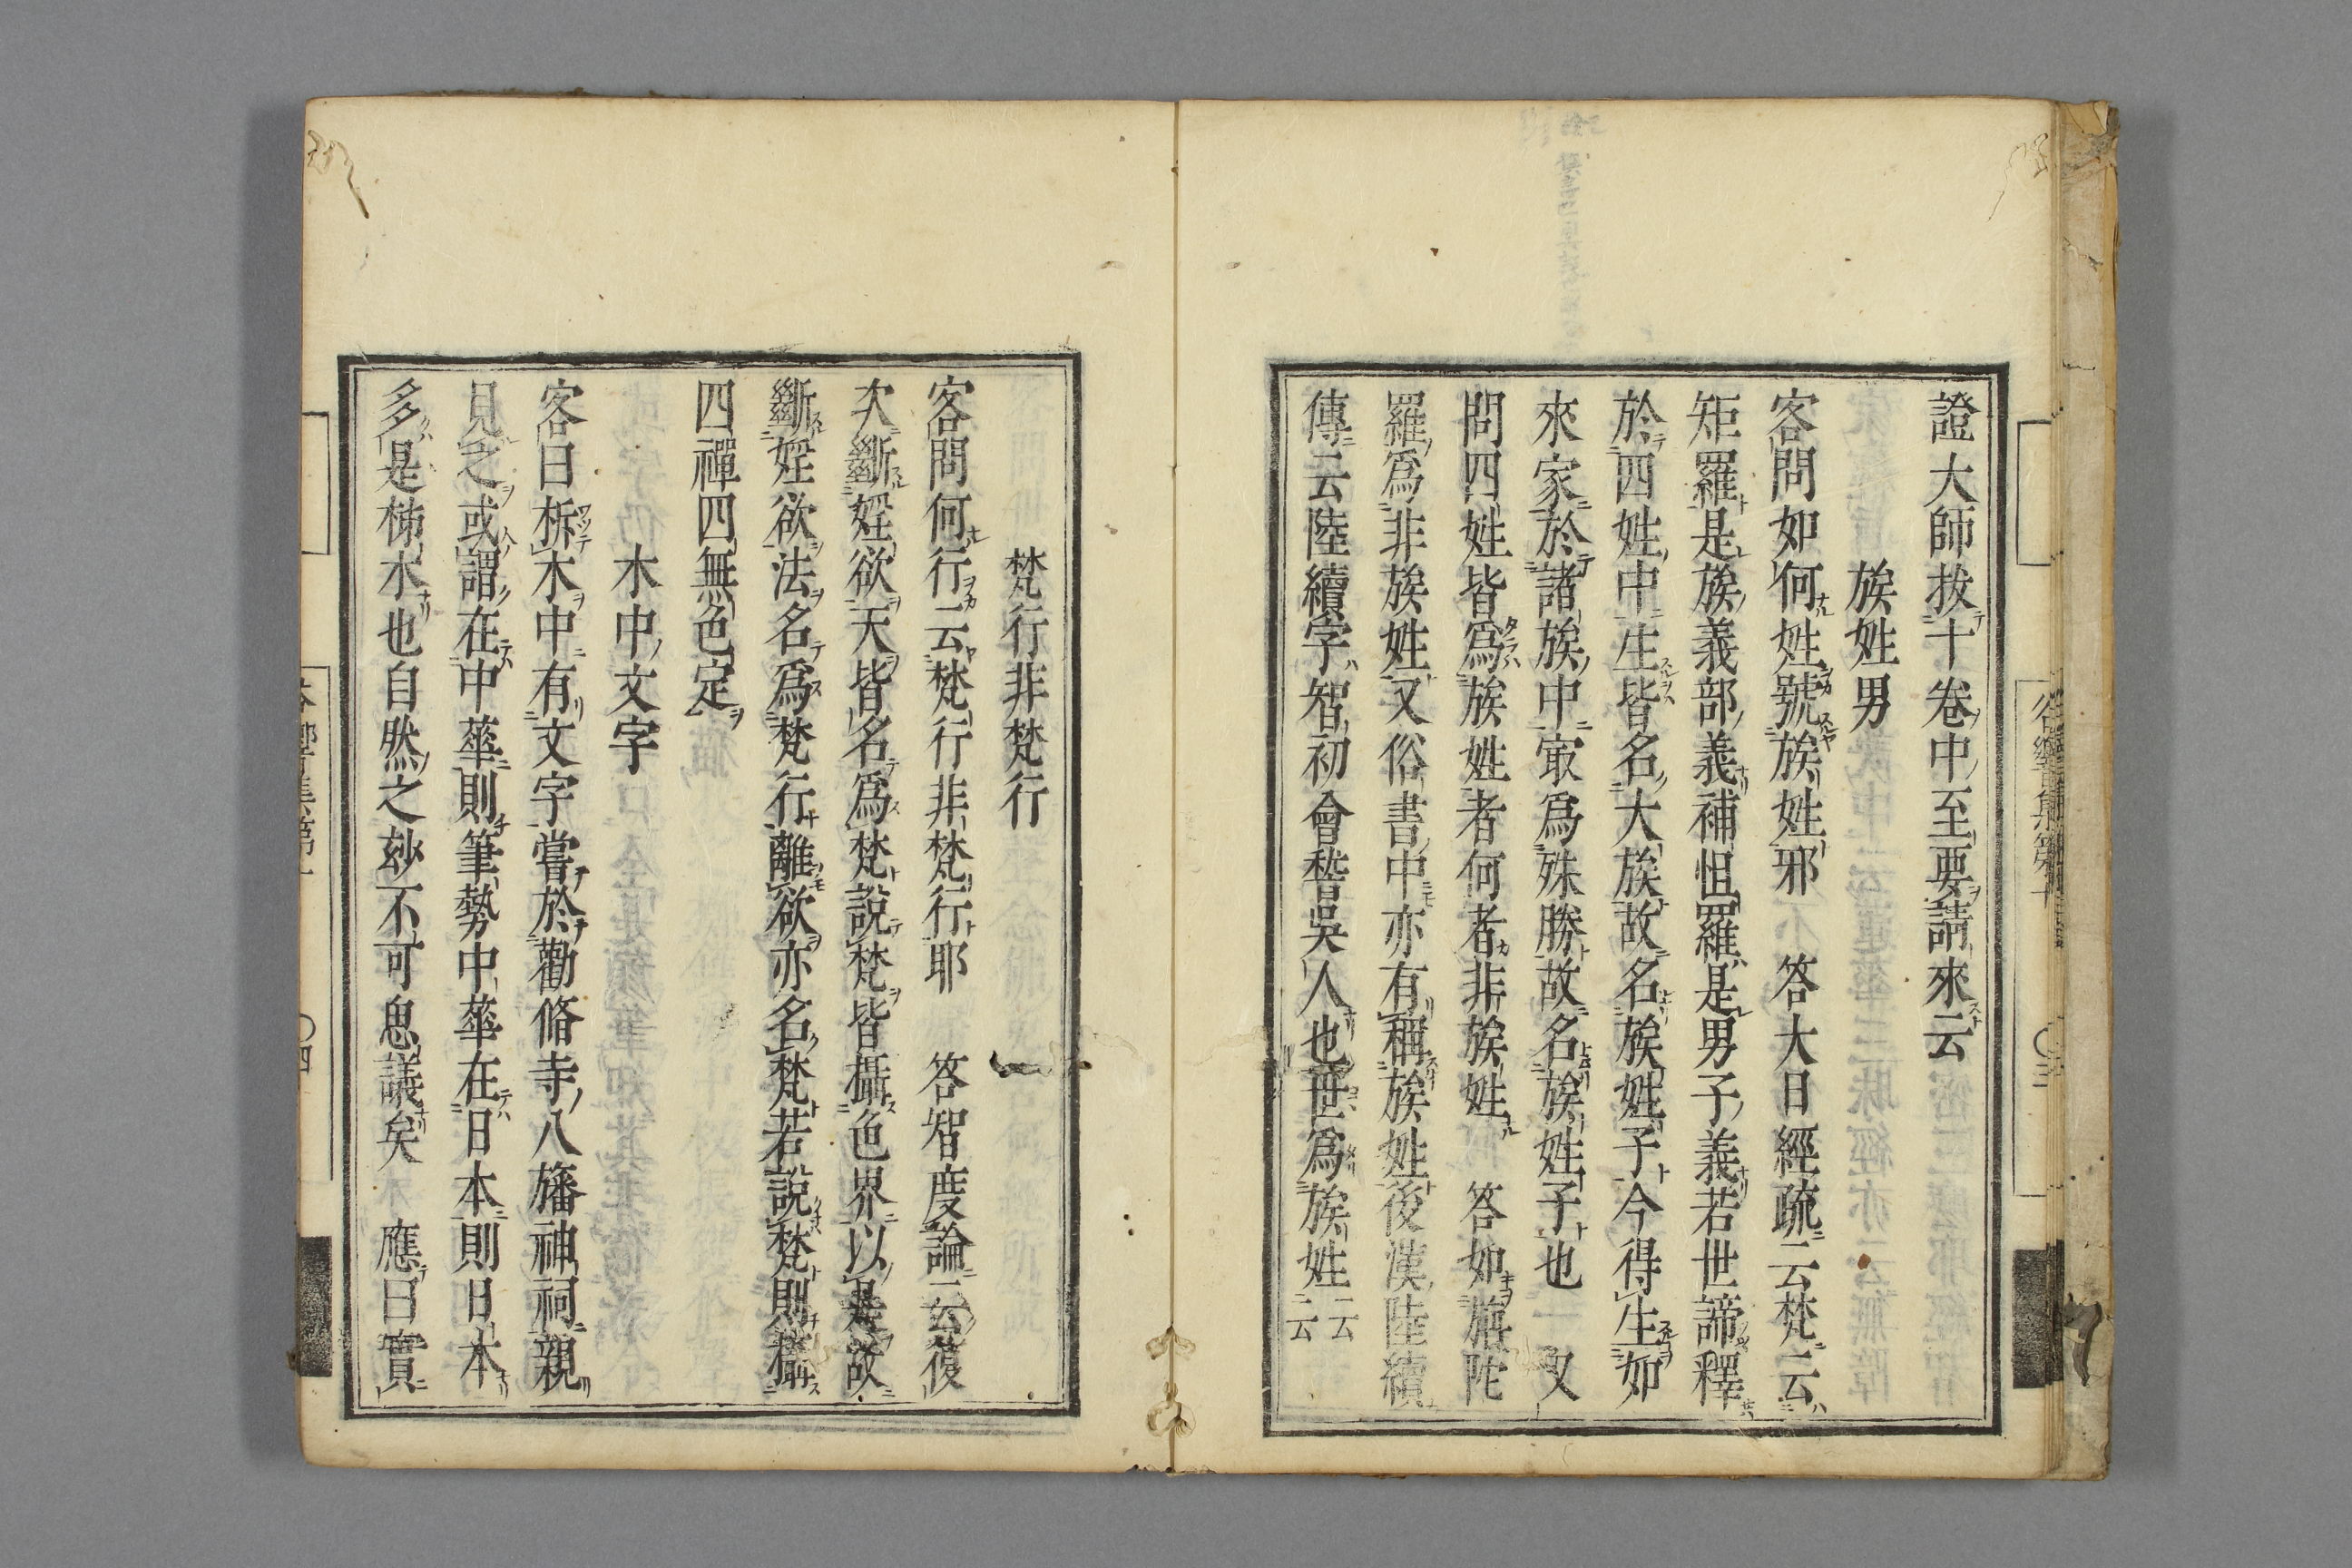 證大師拔十卷中至要請來云
族姓男
客問如何姓號族姓邪 答大日經疏云梵云
矩羅是族義部義補怛羅是男子義若世諦釋
於四姓中生皆名大族故名族姓子今得生如
來家於諸族中㝡爲殊勝故名族姓子也 又
問四姓皆爲族姓者何者非族姓 答如旃陀
羅爲非族姓又俗書中亦有稱族姓後漢陸續
傳云陸續字智初會稽吳人也世爲族姓云云
梵行非梵行
客問何行云梵行非梵行耶 答智度論云復
次斷婬欲天皆名爲梵說梵皆攝色界以是故
斷婬欲法名爲梵行離欲亦名梵若說梵則攝
四禪四無色定
木中文字
客曰柝木中有文字嘗於勸脩寺八旛神祠親
見之或謂在中華則筆勢中華在日本則日本
多是柿木也自然之玅不可思議矣 應曰實